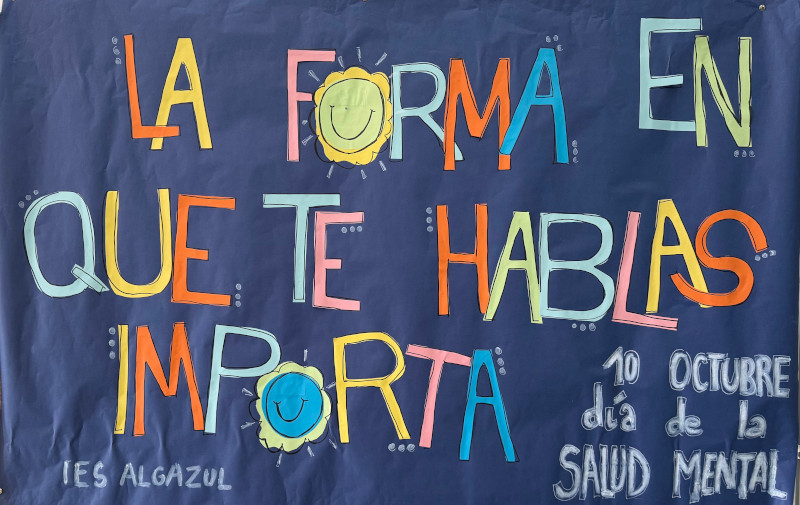 LA FORMA EN
QUE TE HABLAS
IMPORTA
10 OCTUBRE
día de la
SALUD MENTAL
IES ALGAZUL